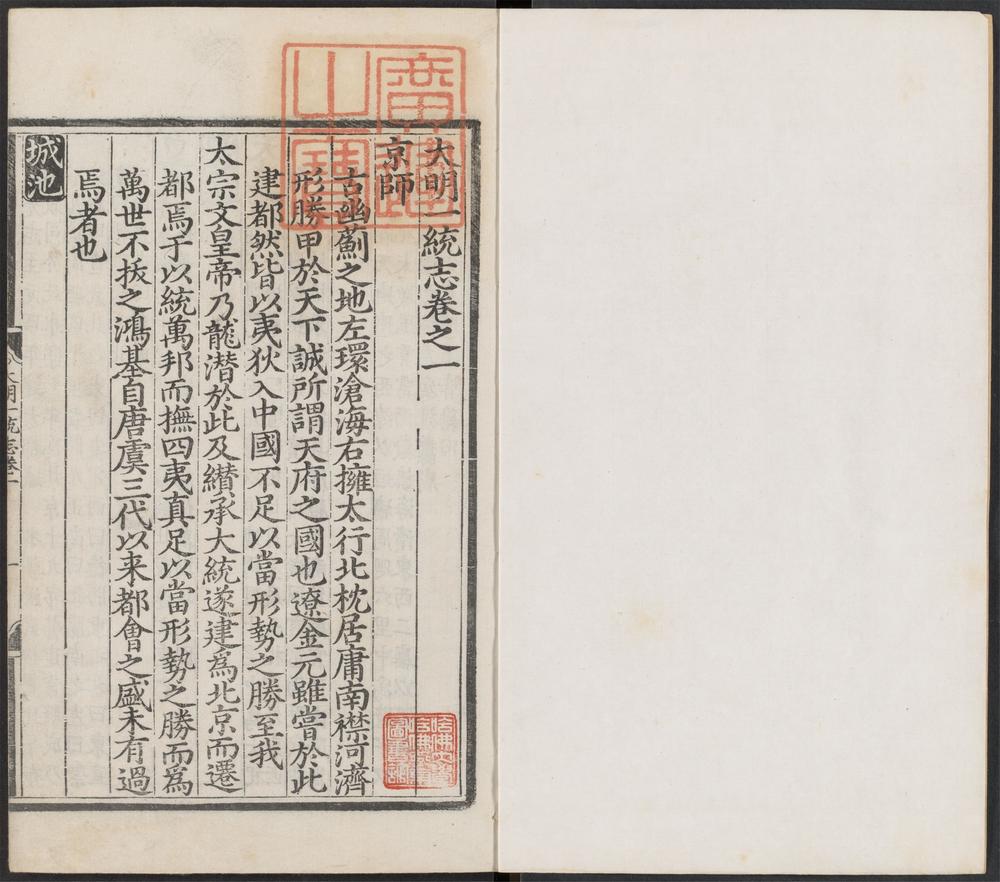 大明一統志卷之一
京師
古幽薊之地左環滄海右擁太行北枕居庸南襟河濟
形勝甲於天下誠所謂天府之國也遼金元雖嘗於此
建都然皆以夷狄入中國不足以當形勢之勝至我
太宗文皇帝乃龍潛於此及纉承大統遂建為北京而遷
都焉于以統萬邦而撫四夷真足以當形勢之勝而為
萬世不拔之鴻基自唐虞三代以来都會之盛未有過
焉者也
城池
大明一統志卷一
一